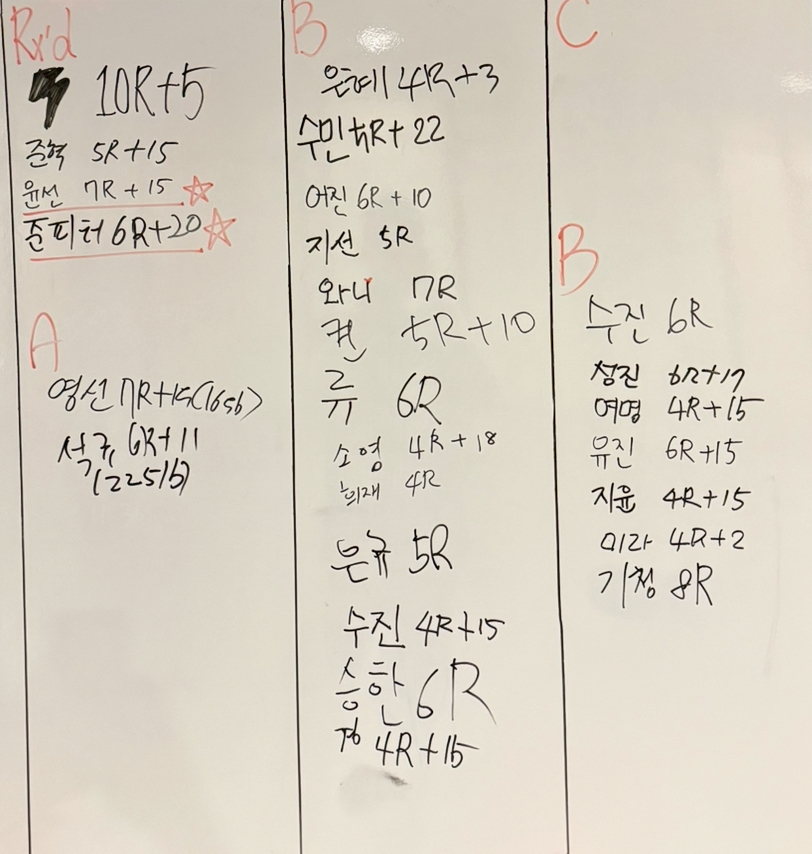 Rx'd
10R+5
준혁 5R+15
윤선 7R+15
준피터 6R+20
A
영선 7R+15(165lb)
석구 6R+11
(225lb)
B
은혜 4R+3
수민 5R+22
어진 6R+10
지선 5R
와니 7R
켠 5R+10
류 6R
소영 4R+18
희재 4R
은규 5R
수진 4R+15
승한 6R
4R+15
C
B
수진 6R
성진 6R+17
여명 4R+15
유진 6R+15
지윤 4R+15
미라 4R+2
기청 8R